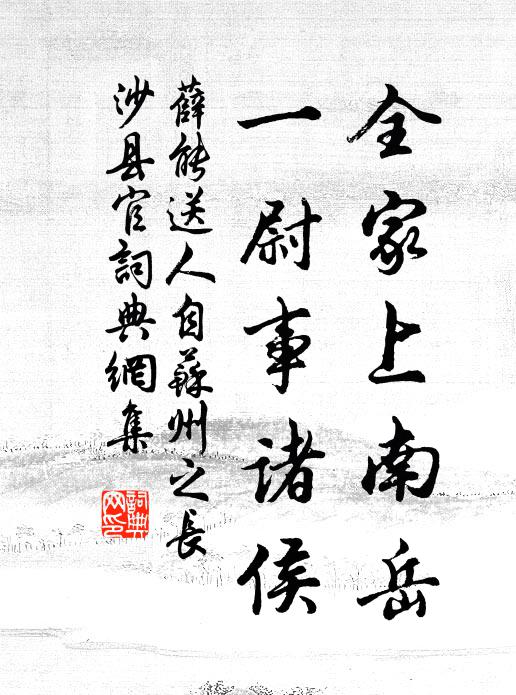 全家上南岳
一尉事诸侯
薛能送人自蘇州之長
沙县官詞典網集
詞典
网印